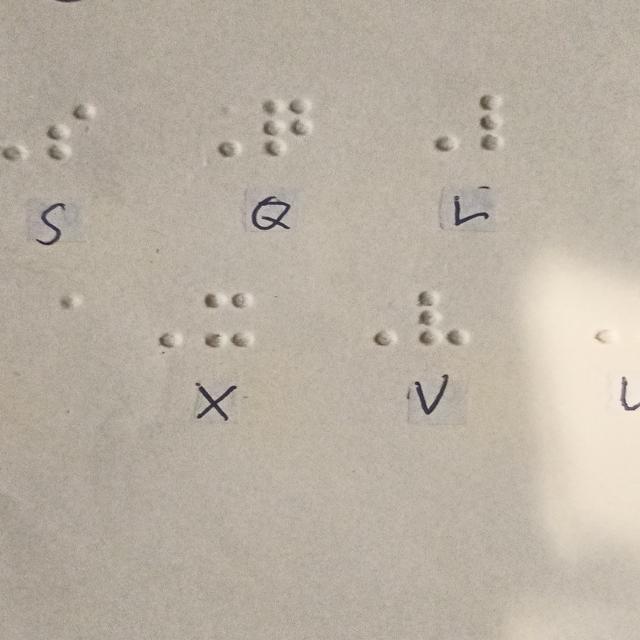 S Q L
X V